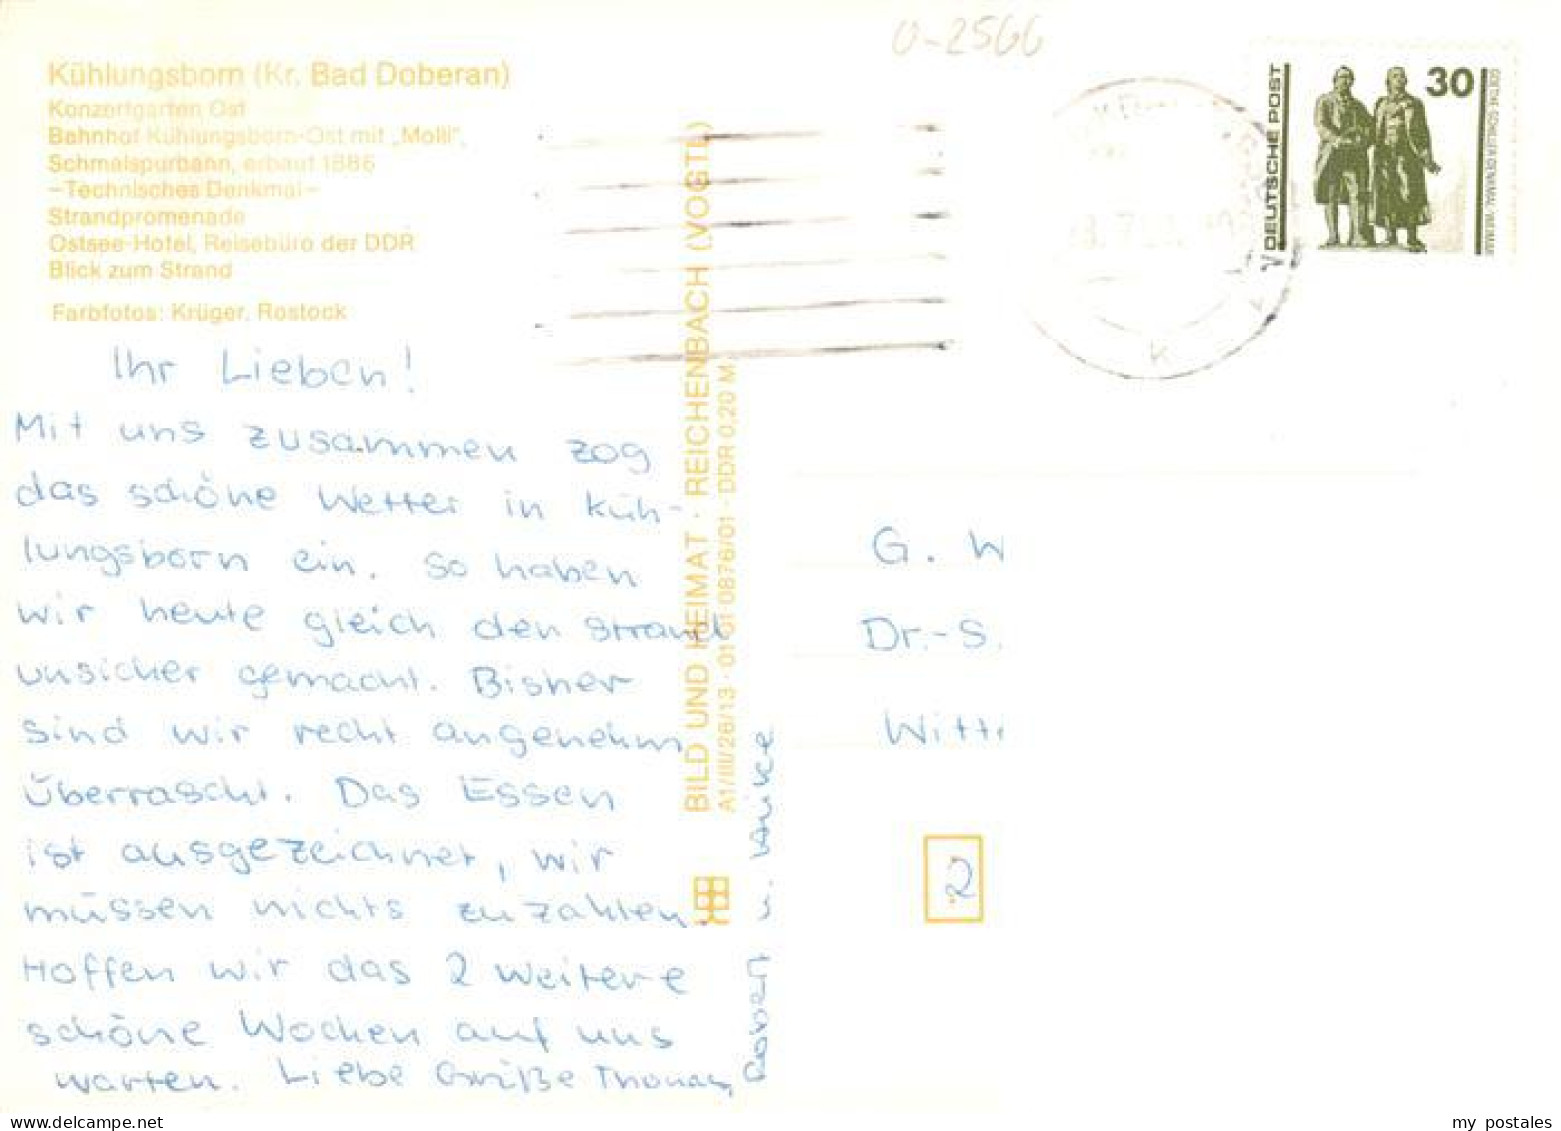 U-2566
Kühlungsborn (Kr. Bad Doberan)
Konzertgarten Ost
Bahnhof Kühlungsborn-Ost mit „Molli",
Schmalspurbahn, erbaut 1886
–Technisches Denkmal–
Strandpromenade
Ostsee-Hotel, Reisebüro der DDR
Blick zum Strand
Farbfotos: Krüger, Rostock
Ihr Lieben!
Mit uns zusammen zog
das schöne Wetter in Küh-
lungsborn ein. So haben
wir heute gleich den Strand
unsicher gemacht. Bisher
sind wir recht angenehm
überrascht. Das Essen
ist ausgezeichnet, wir
müssen nichts zuzahlen.
Hoffen wir das 2 weitere
schöne Wochen auf uns
warten. Liebe Grüße Thomas,
Robert u. Anke
BILD UND HEIMAT · REICHENBACH (VOGTL)
A1/III/26/13 · 01 01 0876/01 · DDR 0,20 M
DEUTSCHE POST
30
GOETHE-SCHILLER-DENKMAL · WEIMAR
G. W
Dr.-S.
Witt
2
my postales